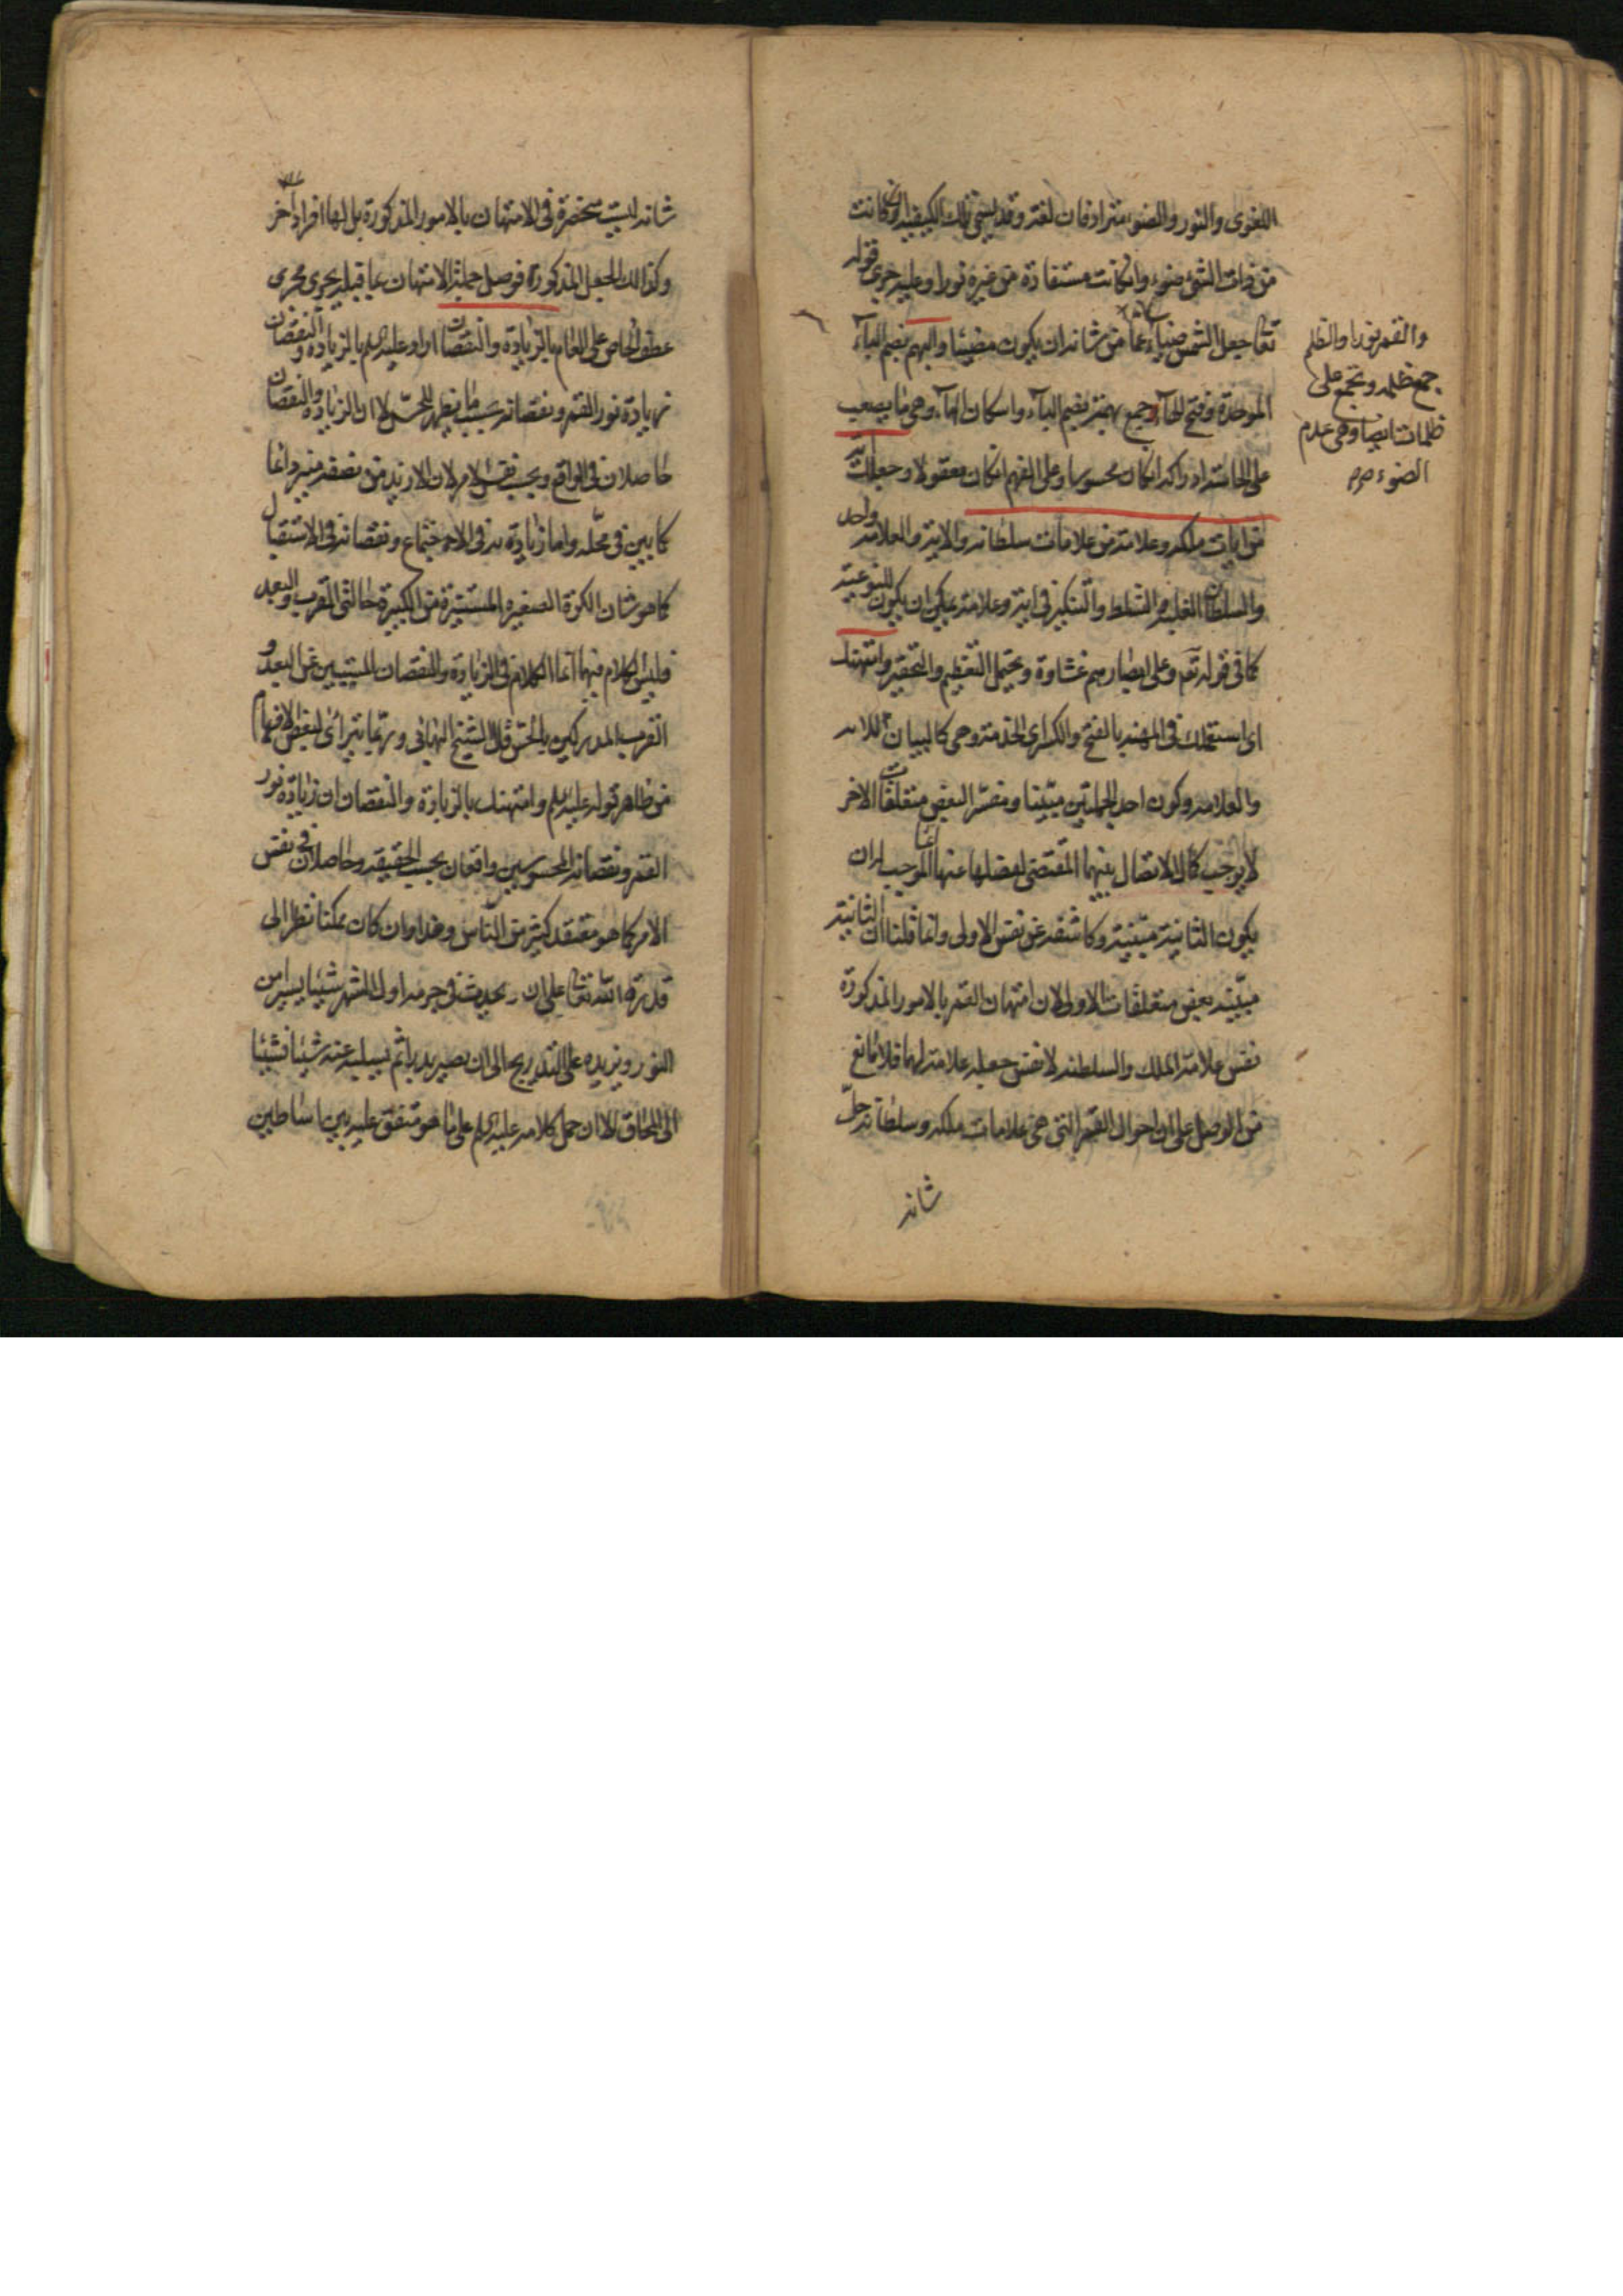 اللغوى والنور والضوء مترادفان لغة وقد يسمى تلك الكيفية ان كانت
من ذات الشئ ضوء وان كانت مستفادة من غيره نورا وعليه جرى قوله
تعالى جعل الشمس ضياء عما من شانه ان يكون مضيئا والبهم بضم الباء
الموحدة وفتح الهاء جمع بهمة بضم الباء واسكان الهاء وهى ما يصعب
على الحاسة ادراكه ان كان محسوسا وعلى الفهم ان كان معقولا وجعلك آية
من ايات ملكه وعلامة من علامات سلطانه والاية والعلامة واحد
والسلطان الغلبة والتسلط والتنكير فى اية وعلامة يمكن ان يكون للنوعية
كما فى قوله تعم وعلى ابصارهم غشاوة ويحتمل التعظيم والتحقير وامتهنك
اى استعملك فى المهنة بالفتح والكسر اى الخدمة وهى كالبيان للاية
والعلامة وكون احد الجملتين مبينا ومفسرا لبعض متعلقات الاخر
لا يوجب كمال الاتصال بينهما المقتضى لفصلها عنها انما الموجب له ان
يكون الثانية مبينة وكاشفة عن نفس الاولى وانما قلنا ان الثانية
مبينة بعض متعلقات الاولى لان امتهان القمر بالامور المذكورة
نفس علامة الملك والسلطنة لا نفس جعله علامة لهما فلا مانع
من الوصل على ان احوال القمر التى هى علامات ملكه وسلطانه جل
شانه
والقمر نورا والظلم
جمع ظلمة وتجمع على
ظلمات ايضا وهى عدم
الضوء
شانه ليست منحصرة فى الامتهان بالامور المذكورة بل لها افراد اخر
وكذلك الجعل المذكورة فوصل جملة الامتهان بما قبله يجرى مجرى
عطف الخاص على العام بالزيادة والنقصان اراد عليه السلم بالزيادة والنقصان
زيادة نور القمر ونقصانه بسبب ما يظهر للحس لا ان الزيادة والنقصان
حاصلان فى الواقع وبحسب نفس الامر لان الازيد من نصفه منير دائما
كما بين فى محله واما زيادته فى الاجتماع ونقصانه فى الاستقبال
كما هو شان الكرة الصغيرة المستنيرة من الكبيرة حالتى القرب والبعد
فليس الكلام فيهما انما الكلام فى الزيادة والنقصان المسببين عن البعد و
القرب المدركين بالحس قال الشيخ البهائى وربما يترائ لبعض الافهام
من ظاهر قوله عليه السلم وامتهنك بالزيادة والنقصان ان زيادة نور
القمر ونقصانه المحسوسين واقعان بحسب الحقيقة وحاصلان فى نفس
الامر كما هو معتقد كثير من الناس وهذا وان كان ممكنا نظرا الى
قدرة الله تعالى على ان يحدث فى جرمه اول الشهر شيئا يسيرا من
النور ويزيده على التدريج الى ان يصير بدرا ثم يسلبه عنه شيئا فشيئا
الى المحاق الا ان حمل كلامه عليه السلم على ما هو متفق عليه بين اساطين